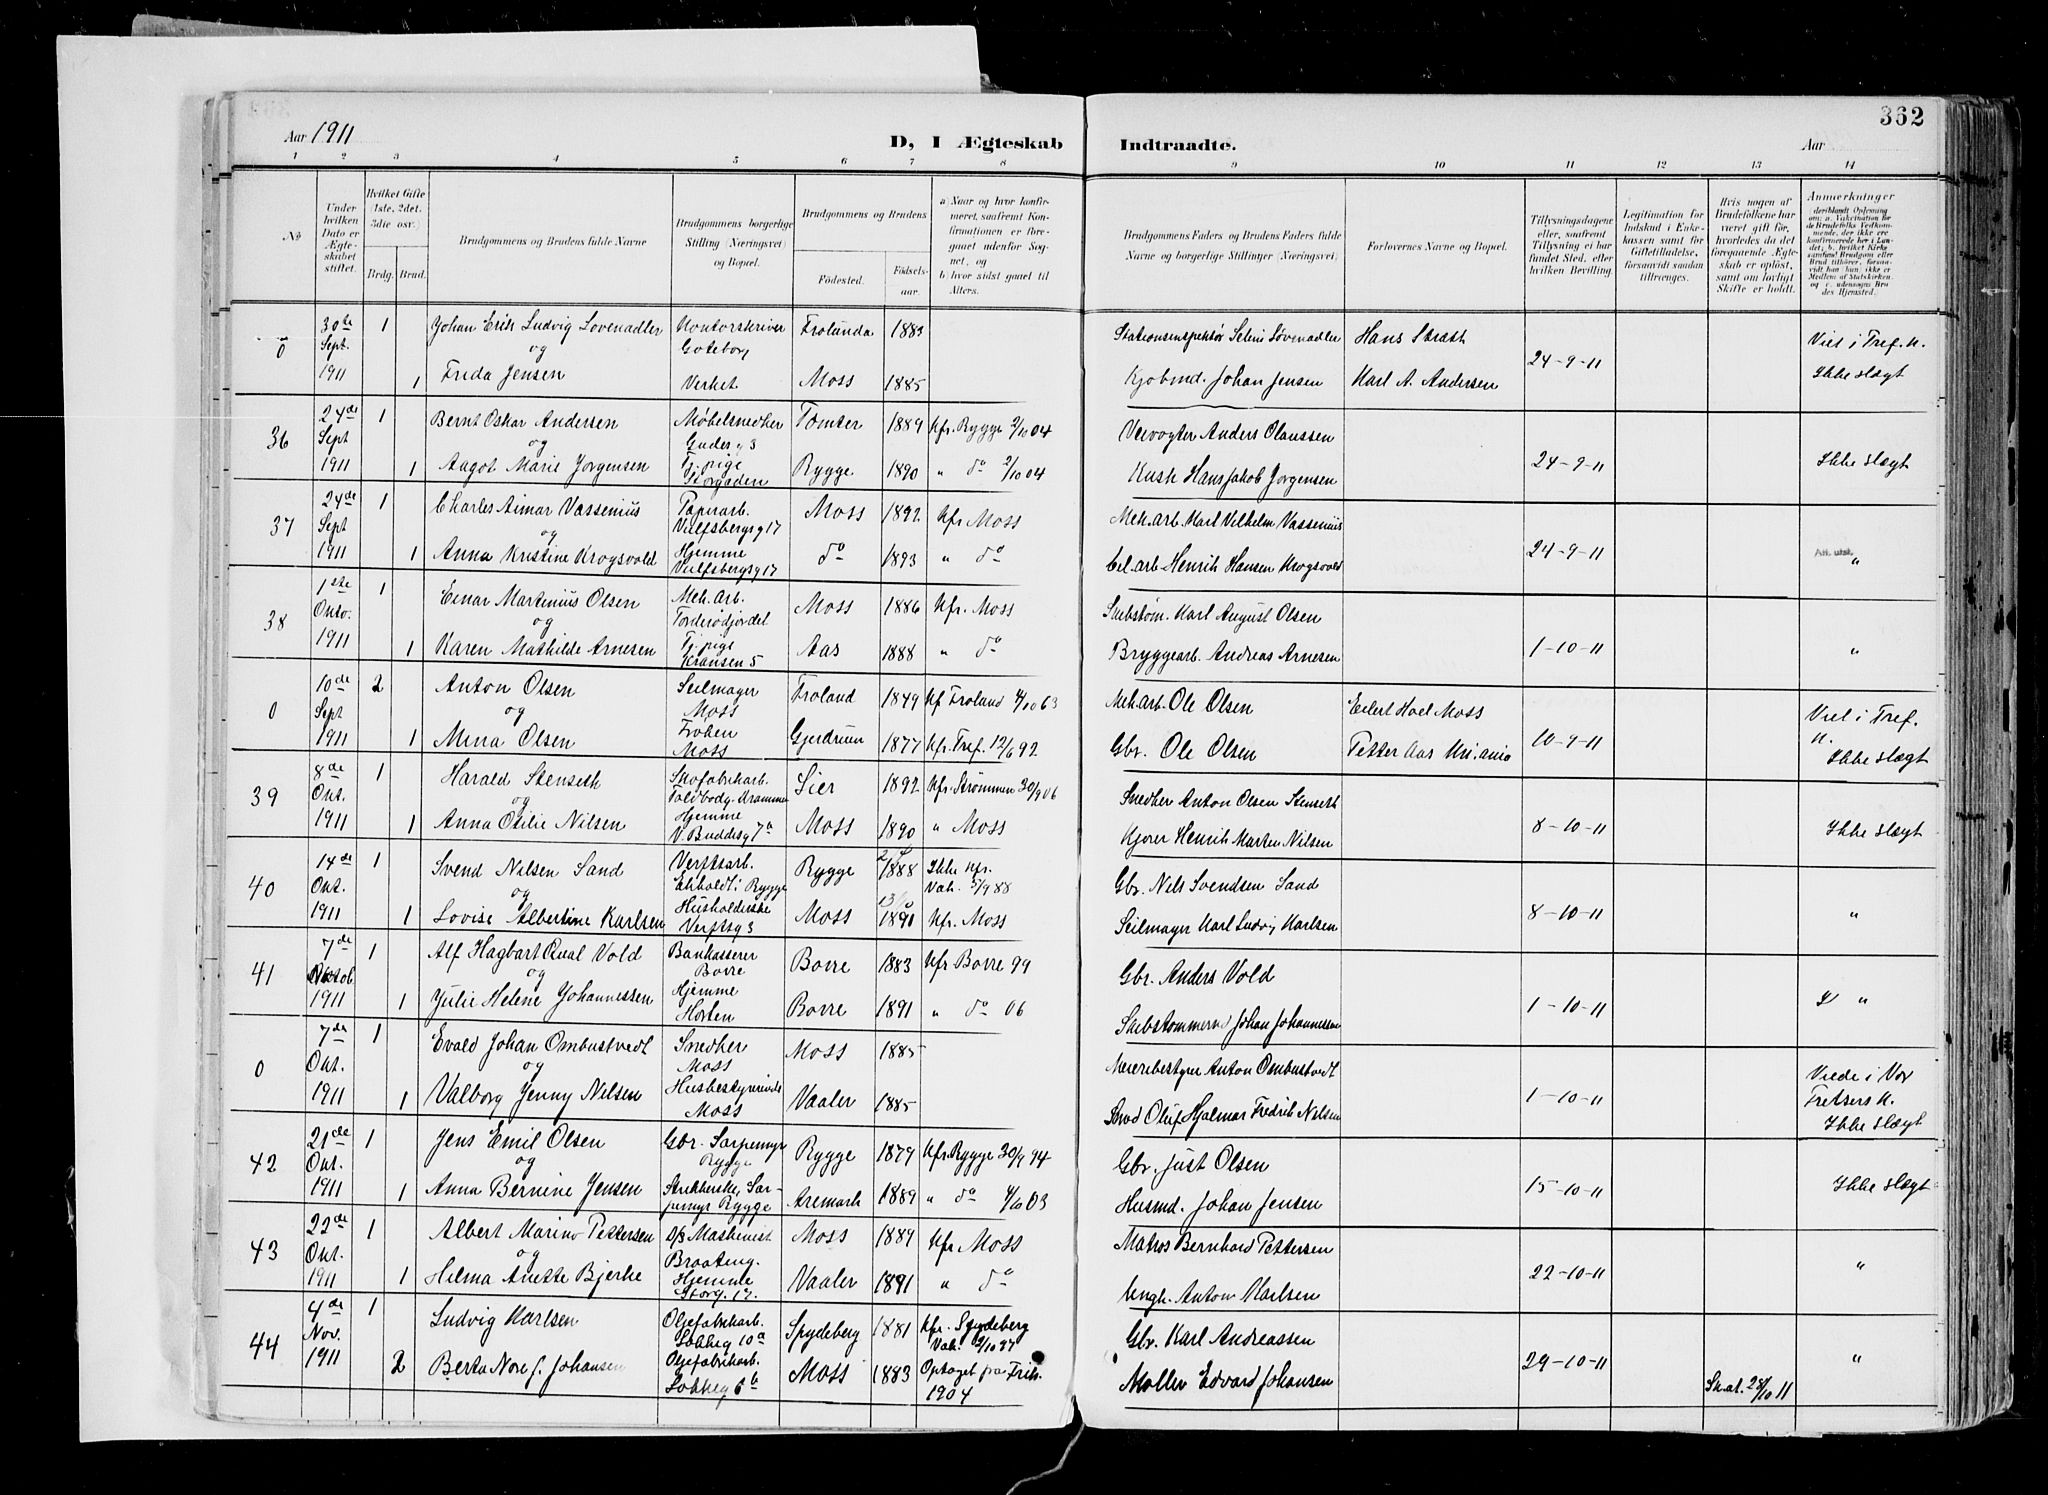 362
Aar 1911
D, I Ægteskab Indtraadte.
Aar
1 2 3 4 5 6 7 8 9 10 11 12 13 14
№
Under hvilken Dato er Ægteskabet stiftet.
Hvilket Gifte (1ste, 2det, 3die osv.)
Brdg. Brud.
Brudgommens og Brudens fulde Navne
Brudgommens borgerlige Stilling (Næringsvei) og Bopæl.
Brudgommens og Brudens
Fødested.
Fødsels-aar.
a) Naar og hvor konfirmeret, saafremt Konfirmationen er foregaaet udenfor Sognet, og
b) hvor sidst gaaet til Alters.
Brudgommens Faders og Brudens Faders fulde Navne og borgerlige Stillinger (Næringsvei).
Forlovernes Navne og Bopæl.
Tillysningsdagene eller, saafremt Tillysning ei har fundet Sted, efter hvilken Bevilling.
Legitimation for Indskud i Enkekassen samt for Giftetilladelse, forsaavidt saadan tiltrænges.
Hvis nogen af Brudefolkene har været gift før, hvorledes da det foregaaende Ægteskab er opløst, samt om lovligt Skifte er holdt.
Anmerkninger
0 30te Sept. 1911 1 Johan Erik Ludvig Lovenadler Kontorskriver Goteborg Frolunda 1883 Stationsinspektør Selim Løvenadler Hans Strøth 24-9-11 Viet i Tref. K.
og
1 Frida Jensen Verket Moss 1885 Kjøbmd. Johan Jensen Karl A. Andersen Ikke slegt
36 24de Sept 1911 1 Bernt Oskar Andersen Møbelsnedker Gudes g 3 Tomter 1889 Kfr. Rygge 2/10 04 Veivogter Anders Olaussen 24-9-11 Ikke slegt
og
1 Aagot Marie Jørgensen Tj. pige Storgaden Rygge 1890 " do 2/10 04 Kusk Hans Jakob Jorgensen
37 24de Sept 1911 1 Charles Aimar Vassenius Papirarb. Vulfsbergsg 17 Moss 1892 Kfr Moss Mek. arb. Karl Vilhelm Vassenius 24-9-11 Att. utst. "
og
1 Anna Kristine Krogsvold Hjemme Vulfsbergsg 17 do 1893 " do Cel. arb. Henrik Hansen Krogsvold
38 1ste Okto. 1911 1 Einar Martinius Olsen Mek. Arb. Torderødjordet Moss 1886 Kfr. Moss Skibstøm. Karl August Olsen 1-10-11 "
og
1 Karen Mathilde Arnesen Tj. pige Kransen 5 Aas 1888 " do Bryggearb. Andreas Arnesen
0 10de Sept 1911 2 Anton Olsen Seilmager Moss Froland 1849 Kf Froland 4/10 63 Mek. Arb. Ole Olsen Eilert Hoel Moss 10-9-11 Viet i Tref. K.
og
1 Mina Olsen Frøken Moss Gjerdrum 1877 Kfr. Tref. 12/6 92 Gbr. Ole Olsen Petter Aas Kri.ania Ikke slegt
39 8de Okt. 1911 1 Harald Stenseth Skofabrikarb. Toldbodg. Krammer Lier 1892 Kfr. Strømmen 30/9 06 Snedker Anton Olsen Stenseth 8-10-11 Ikke slegt
og
1 Anna Otilie Nilsen Hjemme V. Buddesg 7a Moss 1890 " Moss Kjører Henrik Marten Nilsen
40 14de Okt. 1911 1 Svend Nilsen Sand Verftsarb. Ekholdt i Rygge Rygge 2/4 1888 Ikke Kfr. Vak. 5/9 88 Gbr. Nils Svendsen Sand 8-10-11 "
og
1 Lovise Albertine Karlsen Husholderske Verftsg 3 Moss 13/10 1890 Kfr. Moss Seilmager Karl Ludvig Karlsen
41 7de Oktob 1911 1 Alf Hagbart Qual Vold Bankasserer Borre Borre 1883 Kfr Borre 99 Gbr. Anders Vold 1-10-11 "
og
1 Julie Helene Johannessen Hjemme Horten Borre 1891 " do 06 Skibstømmermd Johan Johannessen
0 7de Okt. 1911 1 Evald Johan Ombustvedt Snedker Moss Moss 1885 Meieribestyrer Anton Ombustvedt 1-10-11 Viede i Vor Frelsers K.
og
1 Valborg Jenny Nilsen Husbestyrerinde Moss Vaaler 1885 Oluf Hjalmar Fredrik Nilsen Ikke slegt
42 21de Okt. 1911 1 Jens Emil Olsen Gbr. Sarpemyr Rygge Rygge 1879 Kfr. Rygge 30/9 94 Gbr. Just Olsen 15-10-11 Ikke slegt
og
1 Anna Bernine Jensen Strikkerske, Sarpemyr Rygge Aremark 1889 " do 4/10 03 Husmd. Johan Jensen
43 22de Okt. 1911 1 Albert Marino Pettersen D/s Maskinist Braateng. Moss 1889 Kfr Moss Matros Bernhard Pettersen 22-10-11 "
og
1 Hilma Anette Bjerke Hjemme Storg. 17. Vaaler 1891 " do Ungk. Anton Karlsen
44 4de Nov. 1911 1 Ludvig Karlsen Oljefabrikarb. Løkkeg 10a Spydeberg 1881 Kfr. Spydeberg Vak. 9/10 97 Gbr. Karl Andreassen 29-10-11 "
2 Berta Nore f. Johansen Oljefabrikarb. Løkkeg 6b Moss 1883 Optaget fra Frik. 1904 Møller Edvard Johansen Sk.at. 28/10 11